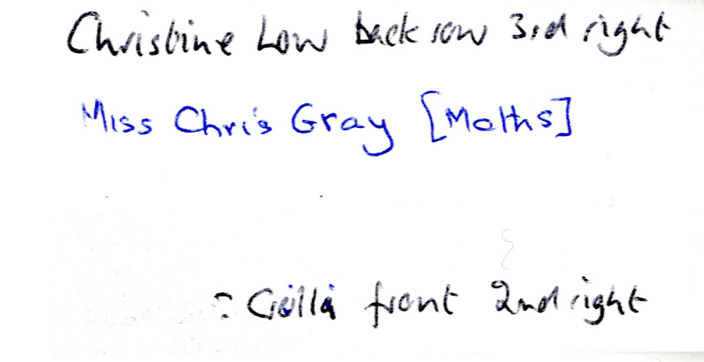 Christine Low back row 3rd right
Miss Chris Gray [Maths]
= Gilla front 2nd right